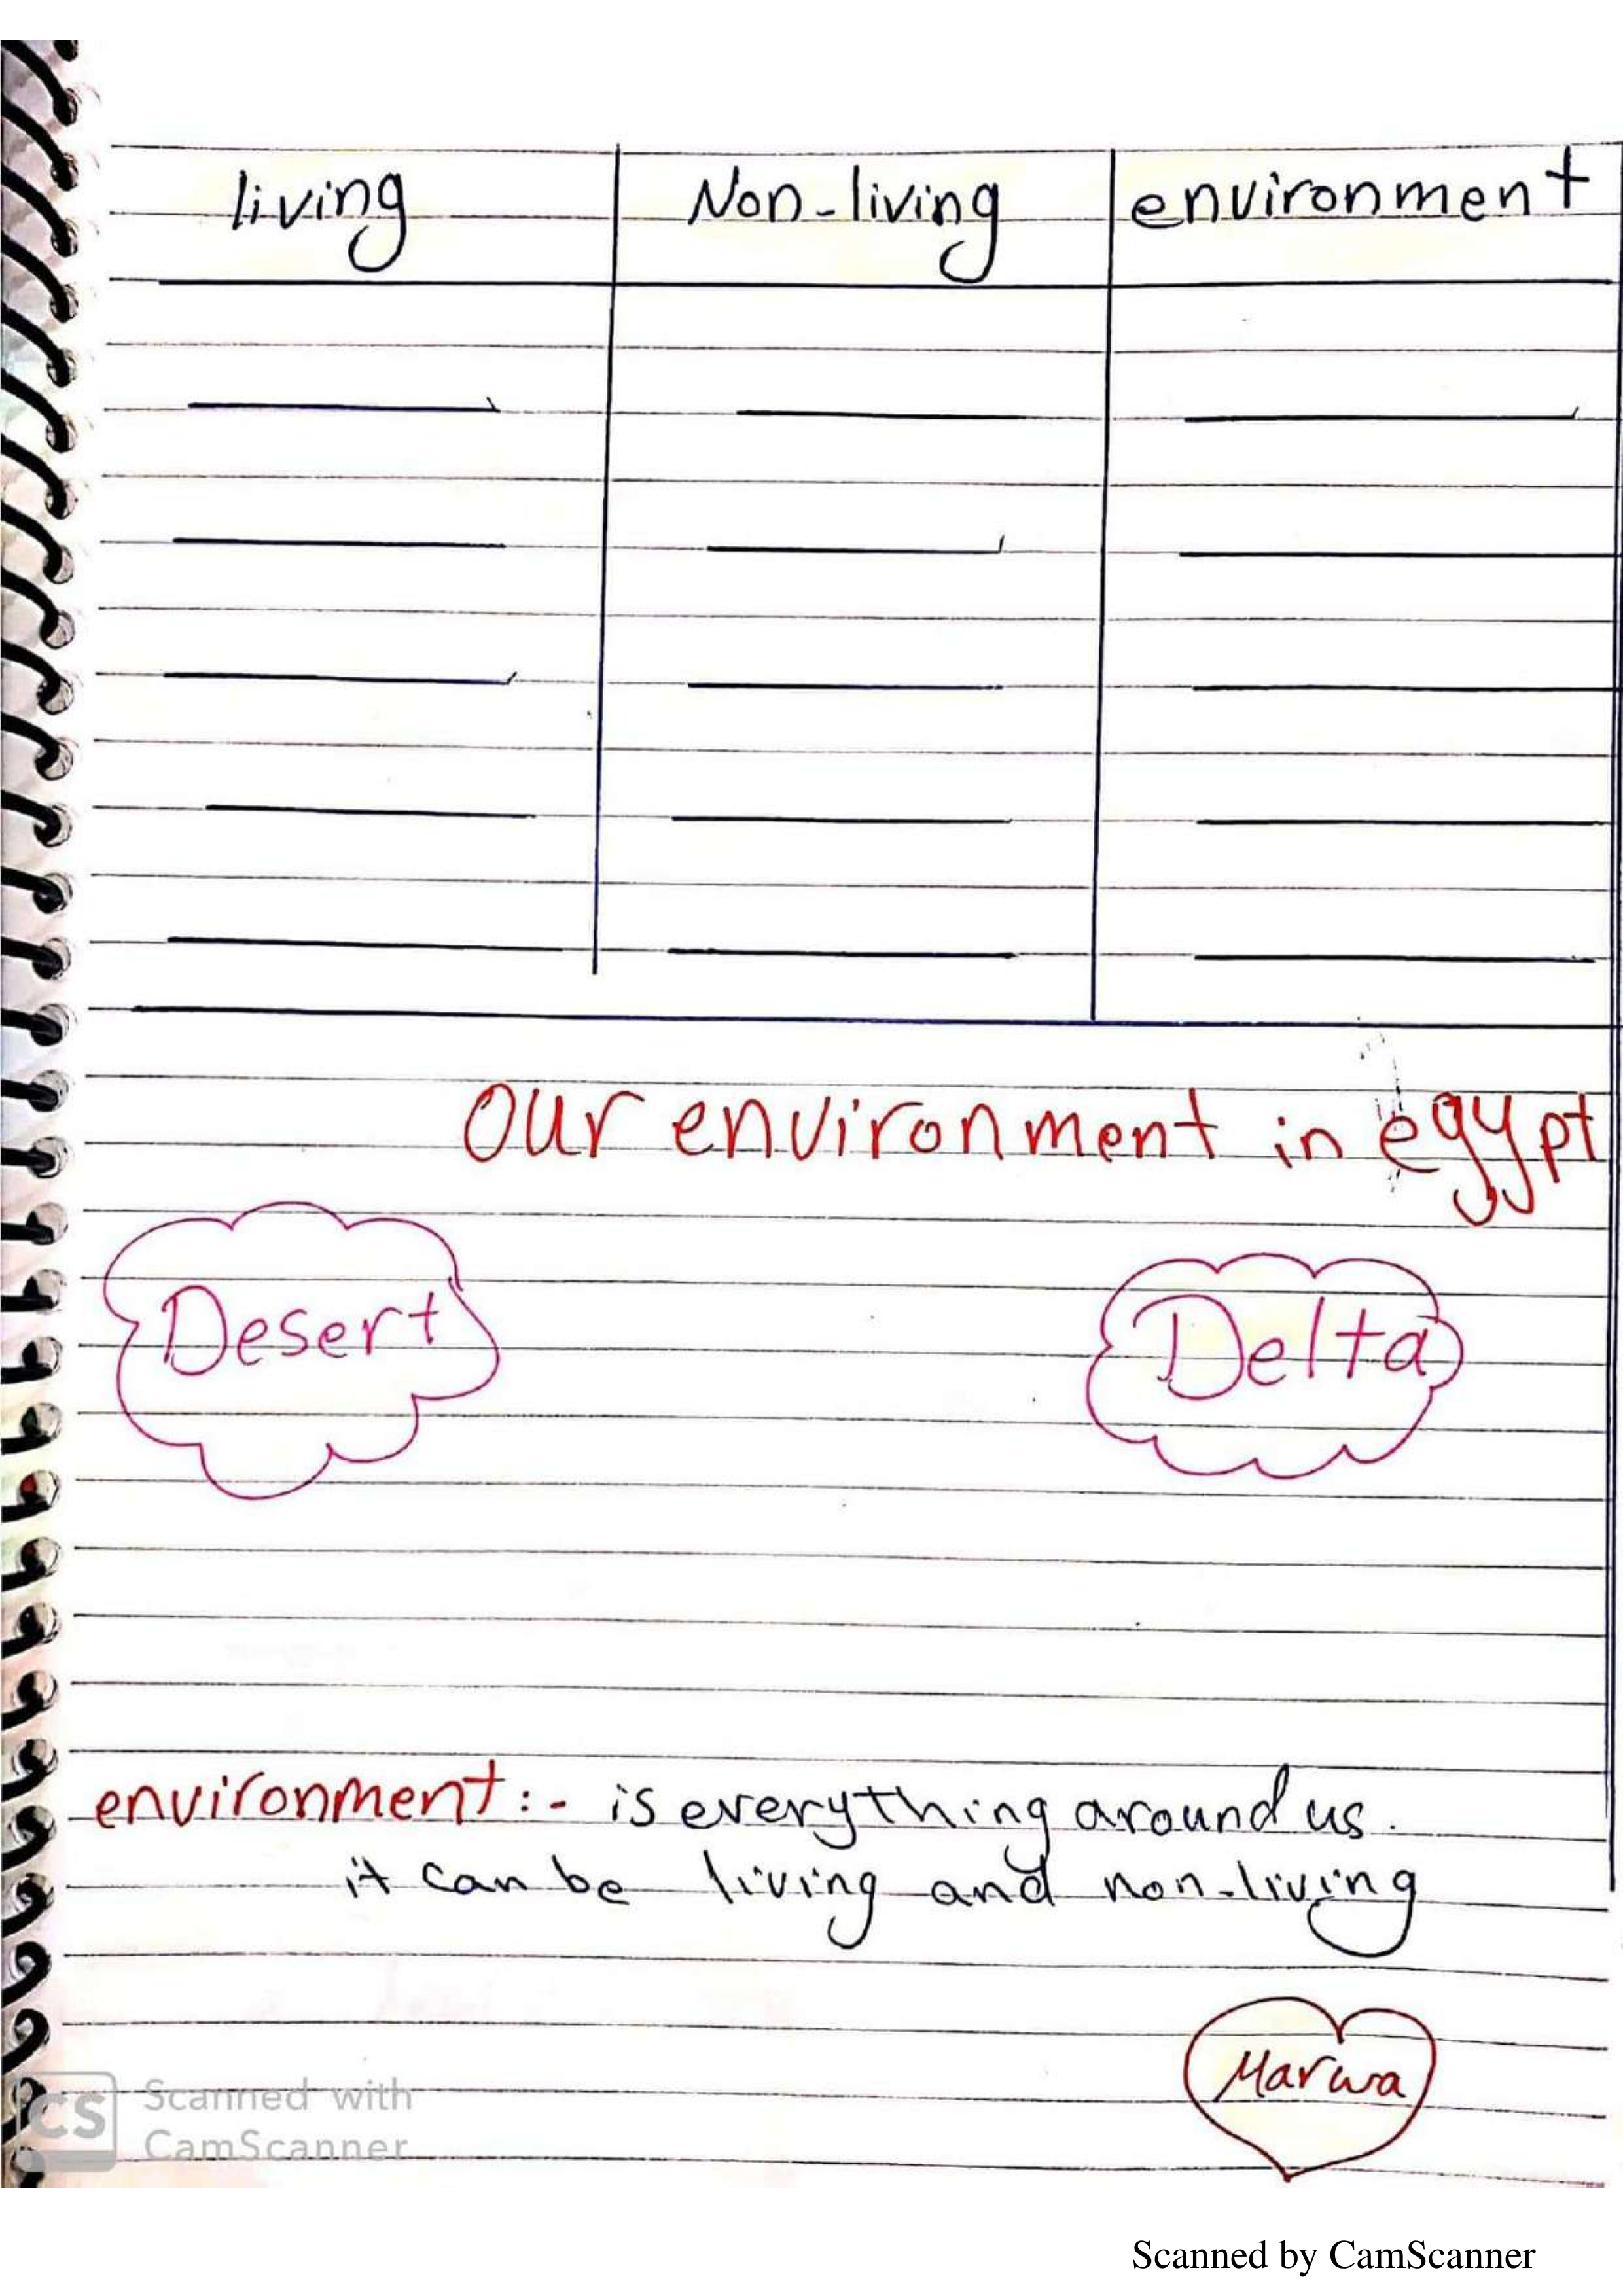 living Non-living environment
Our environment in egypt
Desert Delta
environment:- is everything around us.
it can be living and non-living
Marwa
CS Scanned with
CamScanner
Scanned by CamScanner